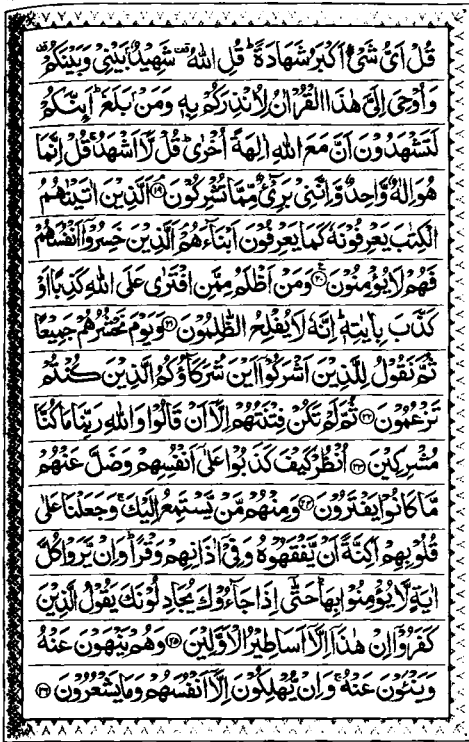 قُلْ اَىُّ شَىْءٍ اَكْبَرُ شَهَادَةً ؕ قُلِ اللّٰهُ ۙ شَهِيْدٌۢ بَيْنِىْ وَبَيْنَكُمْ ۟
وَاُوْحِىَ اِلَىَّ هٰذَا الْقُرْاٰنُ لِاُنْذِرَكُمْ بِهٖ وَمَنْۢ بَلَغَ ؕ اَئِنَّكُمْ
لَتَشْهَدُوْنَ اَنَّ مَعَ اللّٰهِ اٰلِهَةً اُخْرٰى ؕ قُلْ لَّاۤ اَشْهَدُ ۚ قُلْ اِنَّمَا
هُوَ اِلٰهٌ وَّاحِدٌ وَّاِنَّنِىْ بَرِىْٓءٌ مِّمَّا تُشْرِكُوْنَ ۟﴿۱۹﴾ اَلَّذِيْنَ اٰتَيْنٰهُمُ
الْكِتٰبَ يَعْرِفُوْنَهٗ كَمَا يَعْرِفُوْنَ اَبْنَآءَهُمْ ۘ اَلَّذِيْنَ خَسِرُوْۤا اَنْفُسَهُمْ
فَهُمْ لَا يُؤْمِنُوْنَ ﴿۲۰﴾ وَمَنْ اَظْلَمُ مِمَّنِ افْتَرٰى عَلَى اللّٰهِ كَذِبًا اَوْ
كَذَّبَ بِاٰيٰتِهٖ ؕ اِنَّهٗ لَا يُفْلِحُ الظّٰلِمُوْنَ ﴿۲۱﴾ وَيَوْمَ نَحْشُرُهُمْ جَمِيْعًا
ثُمَّ نَقُوْلُ لِلَّذِيْنَ اَشْرَكُوْۤا اَيْنَ شُرَكَآؤُكُمُ الَّذِيْنَ كُنْتُمْ
تَزْعُمُوْنَ ﴿۲۲﴾ ثُمَّ لَمْ تَكُنْ فِتْنَتُهُمْ اِلَّاۤ اَنْ قَالُوْا وَاللّٰهِ رَبِّنَا مَا كُنَّا
مُشْرِكِيْنَ ﴿۲۳﴾ اُنْظُرْ كَيْفَ كَذَبُوْا عَلٰٓى اَنْفُسِهِمْ وَضَلَّ عَنْهُمْ
مَّا كَانُوْا يَفْتَرُوْنَ ﴿۲۴﴾ وَمِنْهُمْ مَّنْ يَّسْتَمِعُ اِلَيْكَ ۚ وَجَعَلْنَا عَلٰى
قُلُوْبِهِمْ اَكِنَّةً اَنْ يَّفْقَهُوْهُ وَفِىْۤ اٰذَانِهِمْ وَقْرًا ؕ وَاِنْ يَّرَوْا كُلَّ
اٰيَةٍ لَّا يُؤْمِنُوْا بِهَا ؕ حَتّٰۤى اِذَا جَآءُوْكَ يُجَادِلُوْنَكَ يَقُوْلُ الَّذِيْنَ
كَفَرُوْۤا اِنْ هٰذَاۤ اِلَّاۤ اَسَاطِيْرُ الْاَوَّلِيْنَ ﴿۲۵﴾ وَهُمْ يَنْهَوْنَ عَنْهُ
وَيَنْئَوْنَ عَنْهُ ۚ وَاِنْ يُّهْلِكُوْنَ اِلَّاۤ اَنْفُسَهُمْ وَمَا يَشْعُرُوْنَ ﴿۲۶﴾